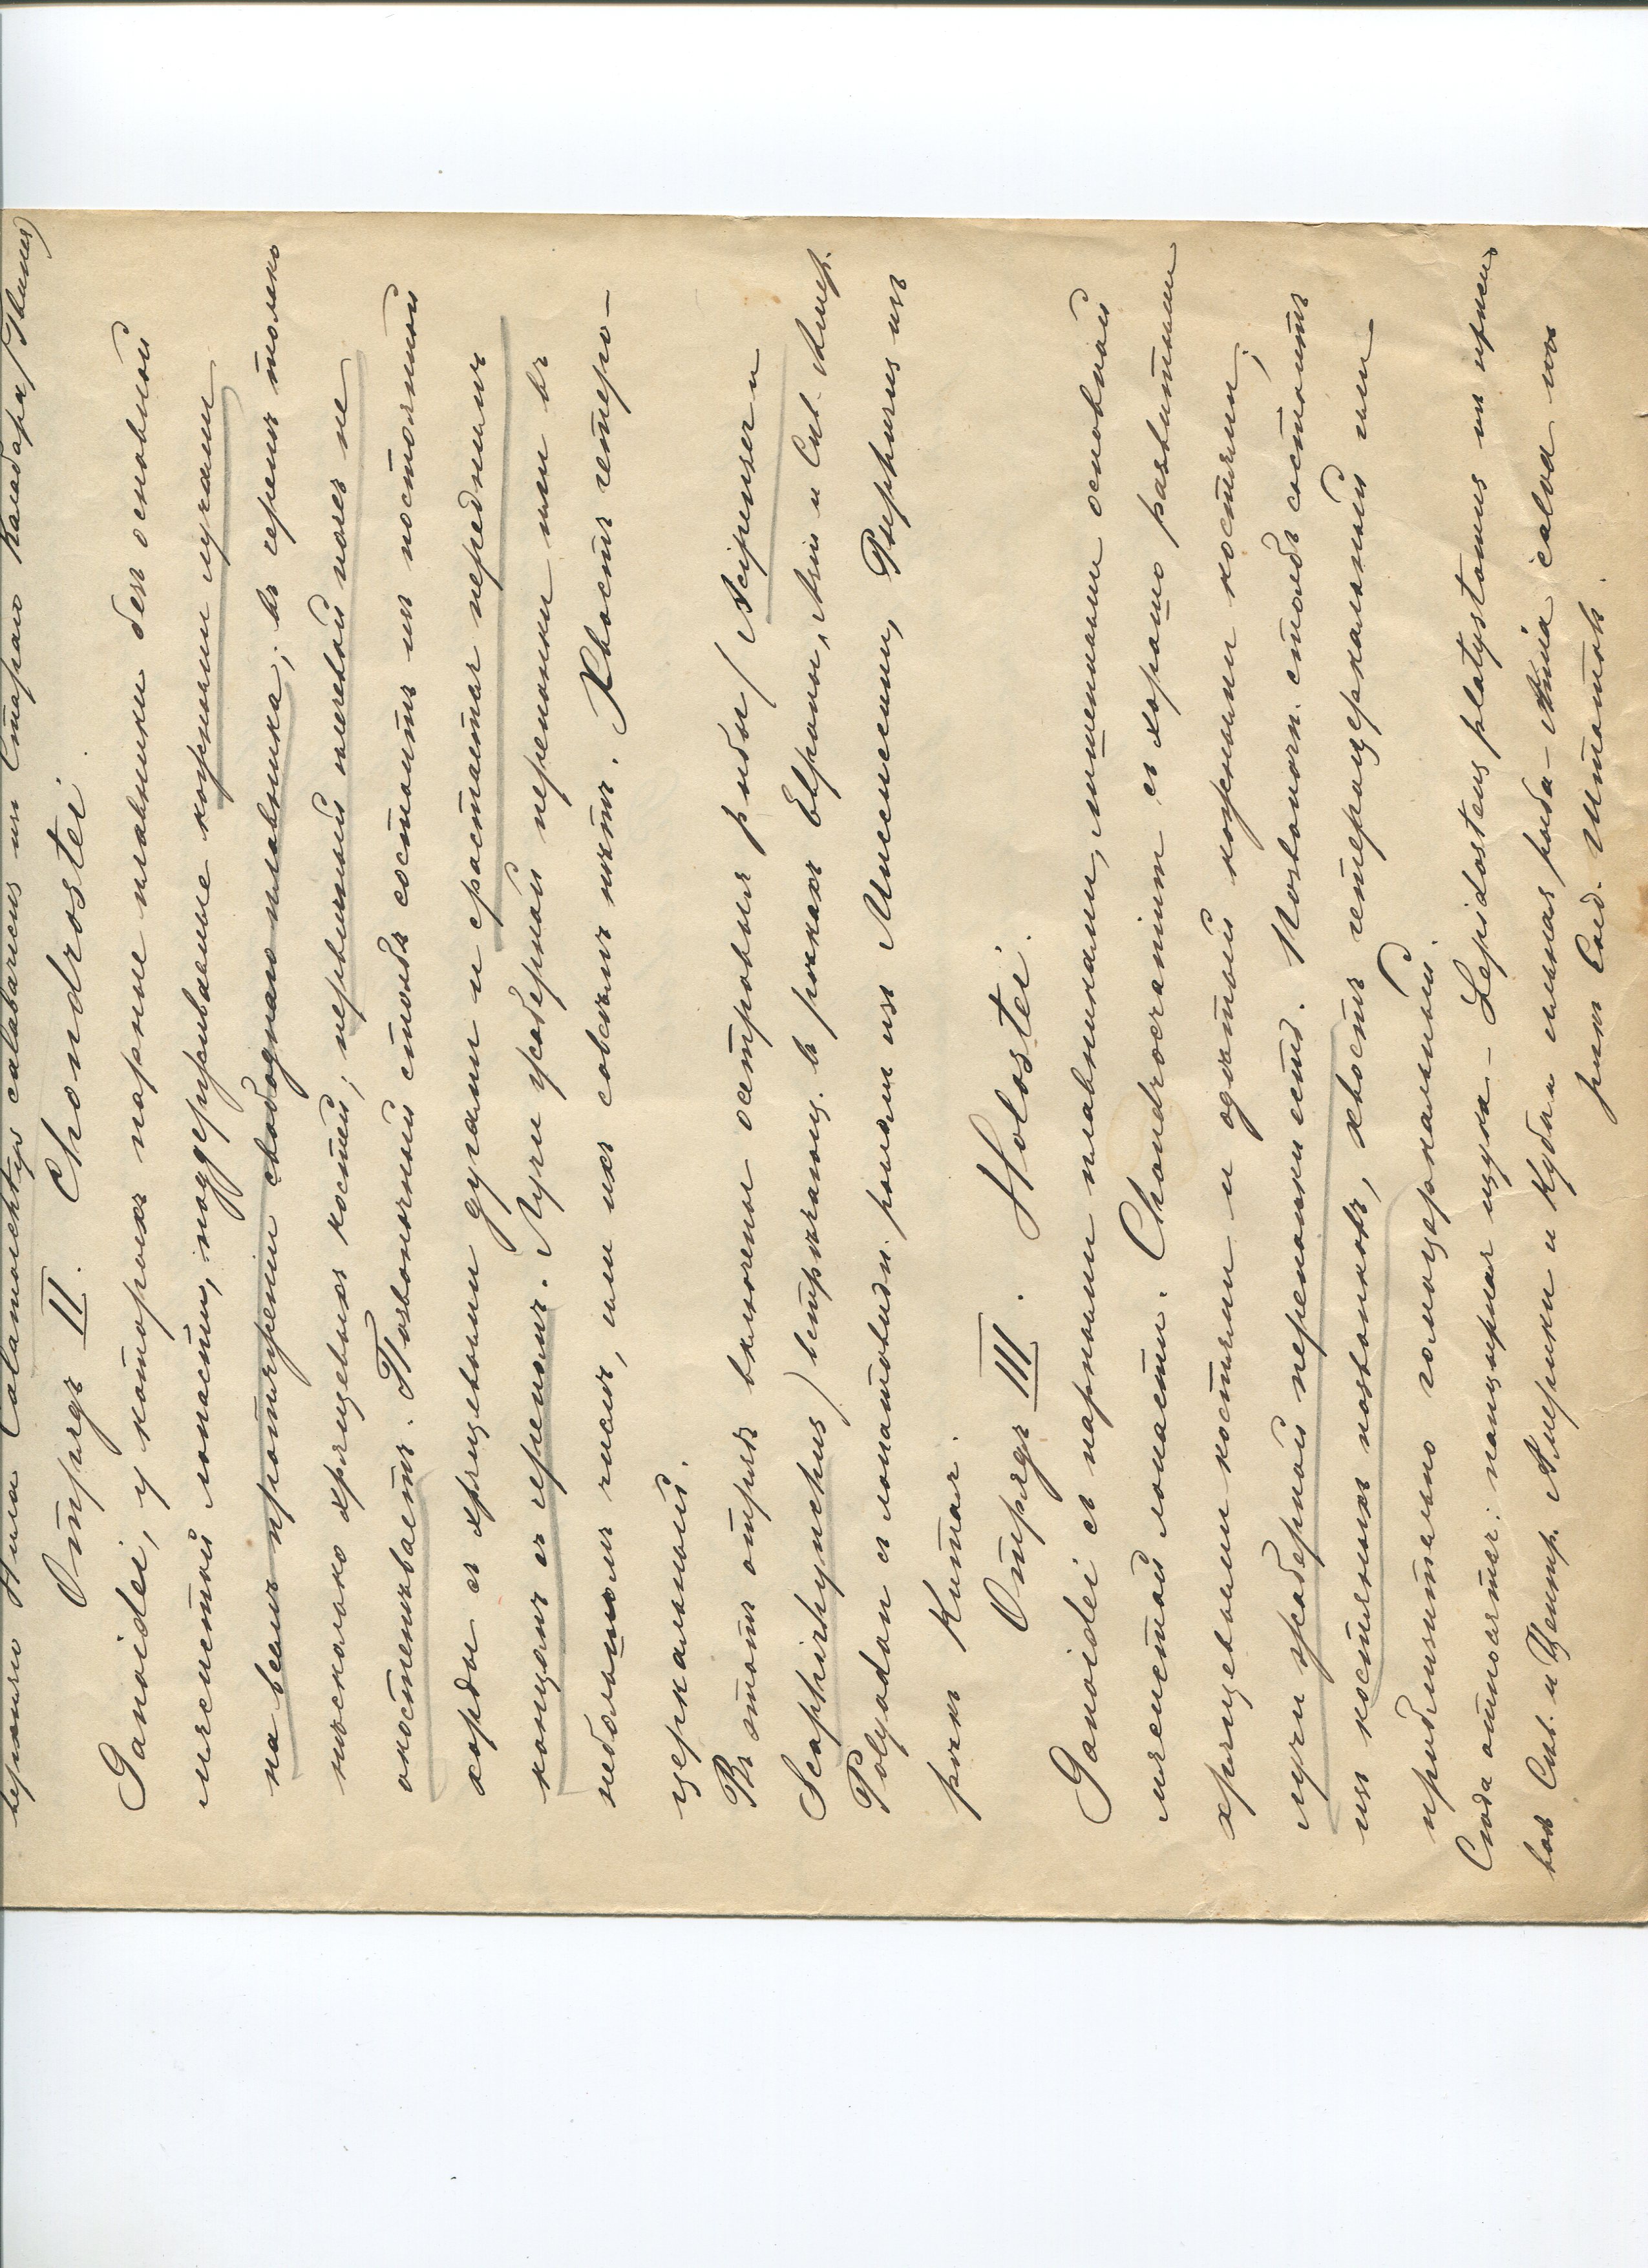 верхняго Нила Calamoichthys calabaricus изъ Стараго Калабара/Гвинея)
Отрядъ II. Chondrostei.
Ganoidei, у которыхъ парные плавники безъ основной
мясистой лопасти, поддерживаемые кожными лучами
на всемъ протяженіи свободнаго плавника; въ черепѣ только
нѣсколько хрящевыхъ костей; первичный плечевой поясъ не
окостенѣваетъ. Позвоночный столбъ состоитъ из постоянной
хорды съ хрящевыми дугами и сростается переднимъ
концомъ съ черепомъ. Лучи жаберной перепонки или въ
небольшомъ числѣ, или ихъ совсѣмъ нѣтъ. Хвостъ гетеро-
церкальный.
Въ этотъ отрядъ включены осетровыя рыбы /Acipenser и
Scaphirhynchus) встрѣчающ. въ рѣкахъ Европы, Азіи и Сѣв. Амер.
Polyodon съ лопатовидн. рыломъ изъ Миссисипи, Psephurus изъ
рѣкъ Китая.
Отрядъ III. Holostei.
Ganoidei съ парными плавниками, лишенными основной
мясистой лопасти. Chondrocranium съ хорошо развитыми
хрящевыми костями и одѣтый кожными костями;
лучи жаберной перепонки есть. Позвоночн. столбъ состоитъ
изъ костяныхъ позвонковъ, хвостъ гетероцеркальный или
приблизительно гомоцеркальный.
Сюда относятся: панцырная щука - Lepidosteus platystomus из прѣсн.
вод Сѣв. и Центр. Америки и Кубы и илистая рыба - Amia calva изъ
рѣкъ Соед. Штатовъ.